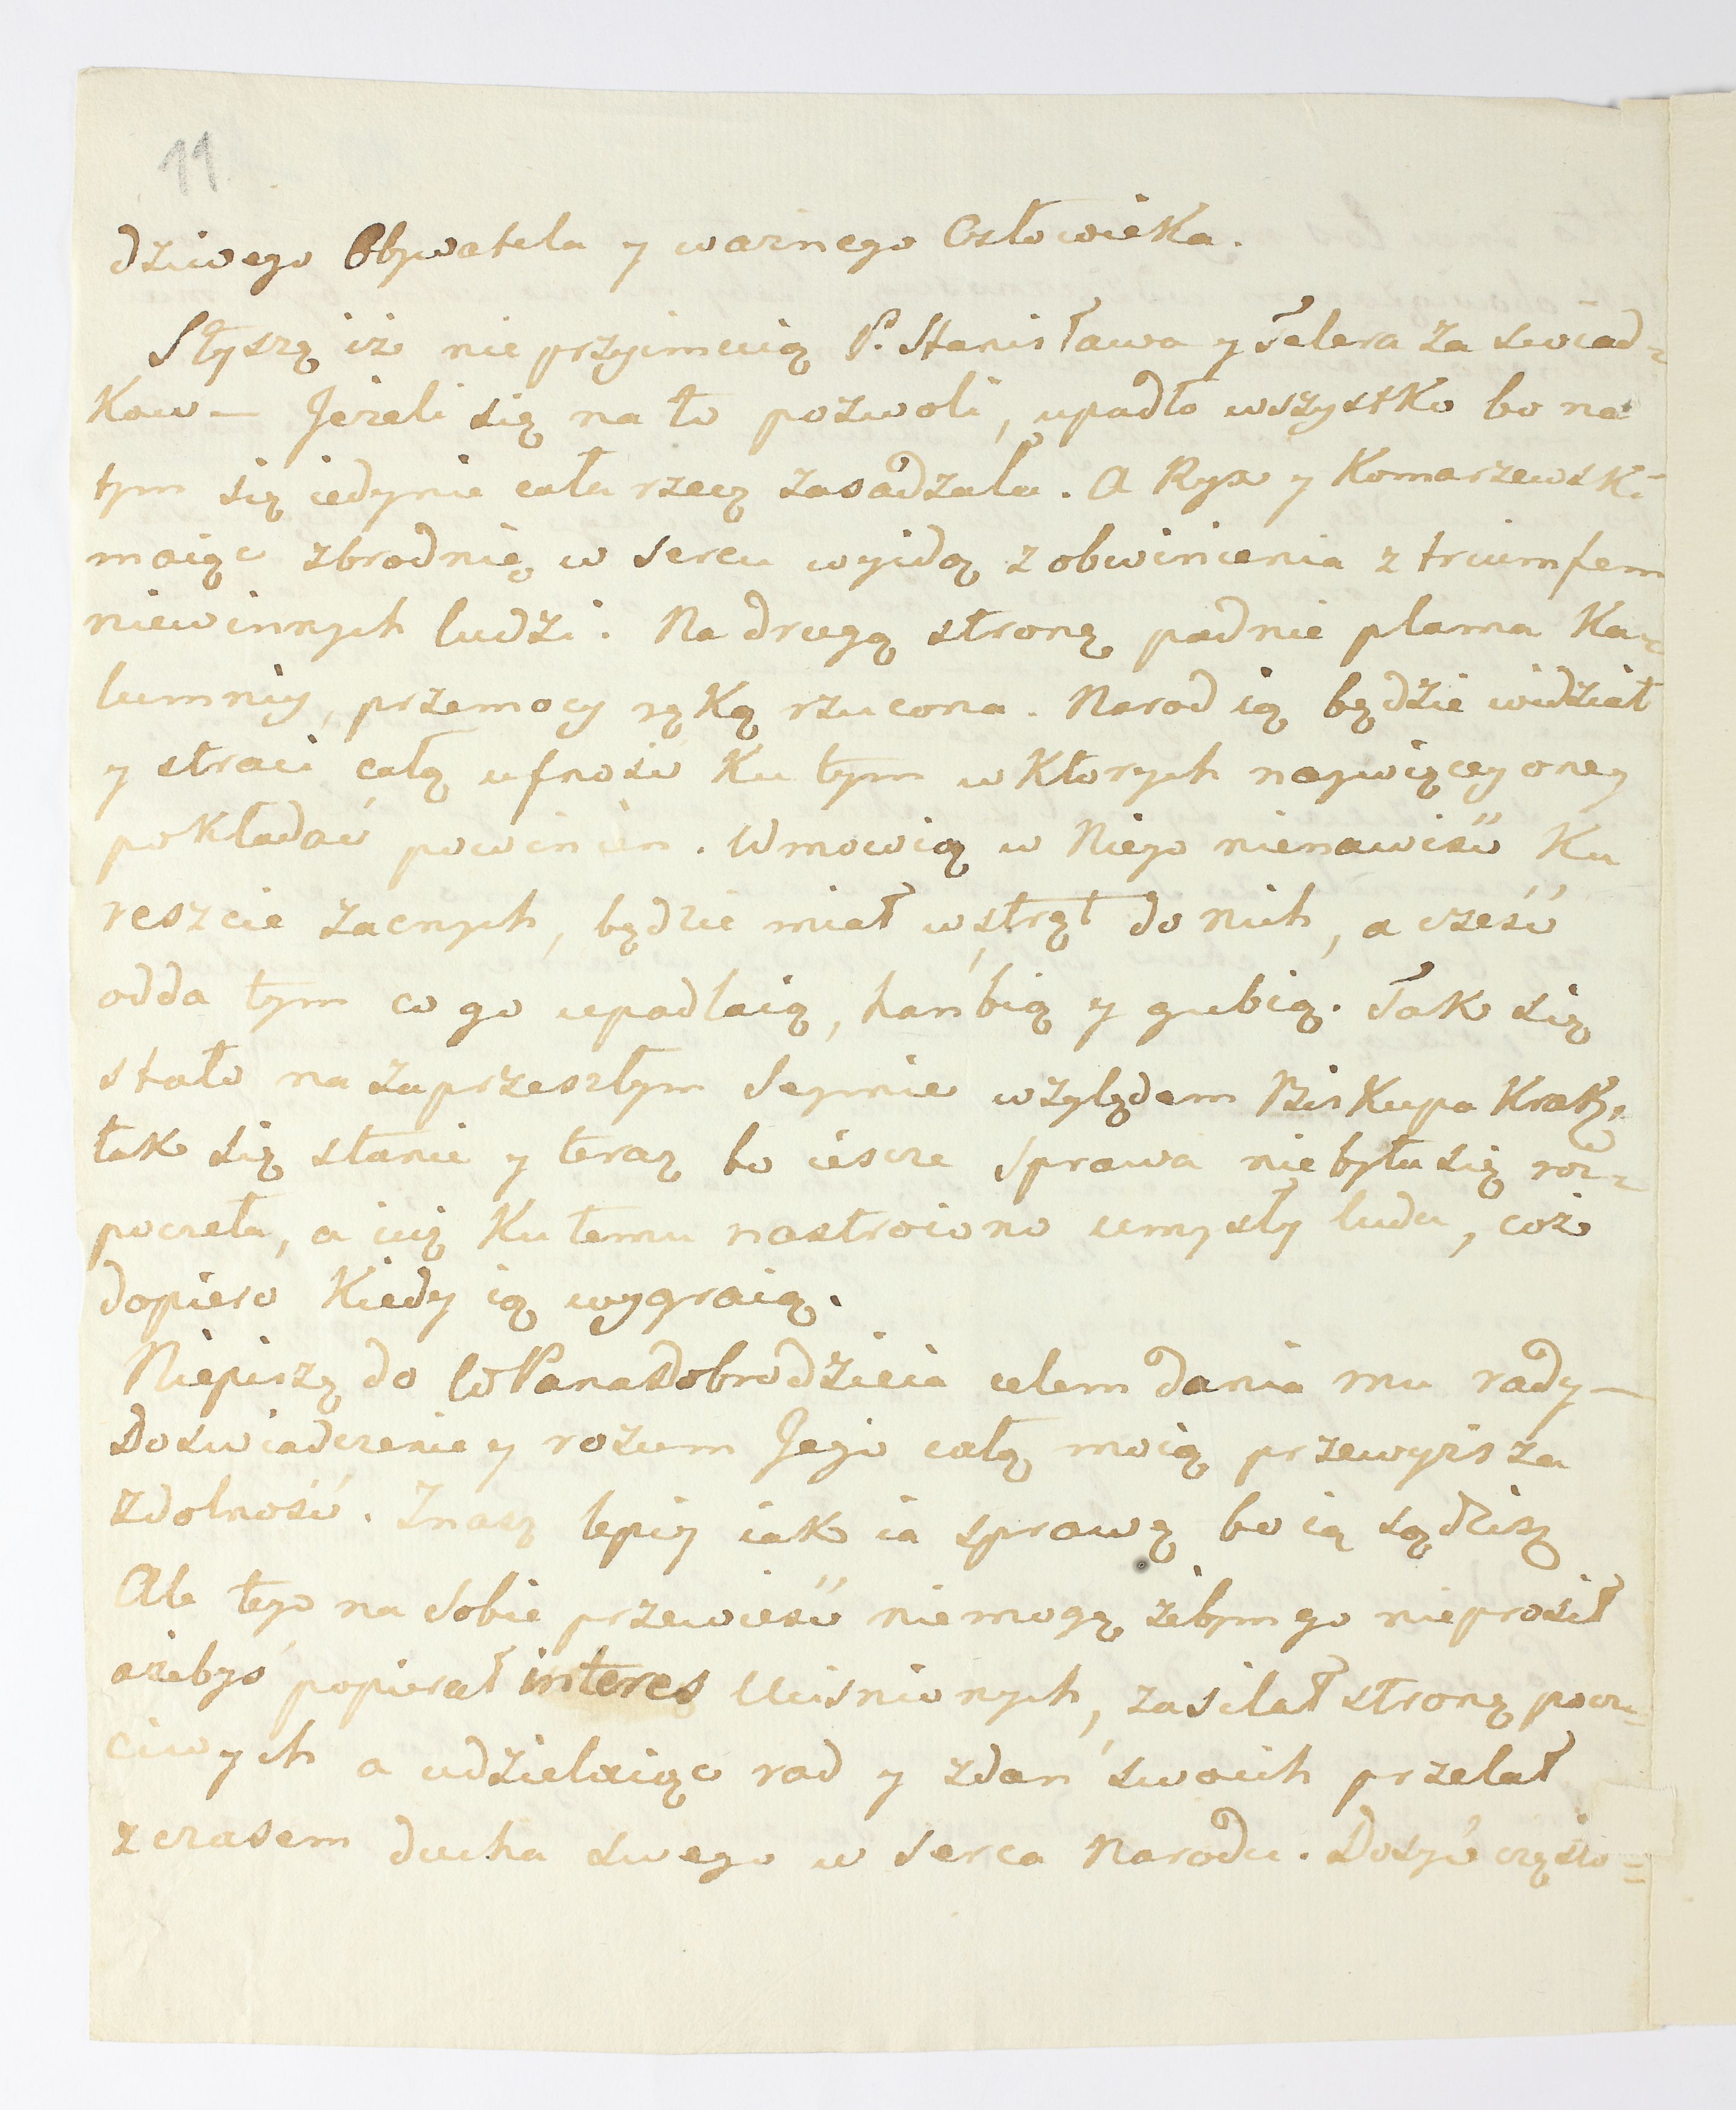 11
dziwego Obywatela y waznego Człowieka.
Słyszę iż nie przyimuią P. Stanisława y Telera za swiad=
kow — Jezeli się na to pozwoli, upadło wszystko bo na
tym się iedynie cała rzecz zasadzała. A Ryx y Komarzewski
maiąc zbrodnię w sercu wyidą z obwinienia z triumfem
niewinnych ludzi. Na drugą stronę padnie plama Ka=
lumniy, przemocy ręką rzucona. Narod ią będzie widział
y straci całą ufność ku tym w ktorych naywięcey oney
pokładać powinien. Wmowią w Niego nienawiść ku
reszcie zacnych, będzie miał wstręt do nich, a cześć
odda tym co go upadlaią, hańbią y gubią. Tak się
stało na zaprzeszłym Seymie względem Biskupa Krak:
tak się stanie y teraz bo iescze sprawa nie była się roz=
poczeła, a iuz ku temu nastroiono umysły ludu, coż
dopiero kiedy ią wygraią.
Niepiszę do WPanadobrodzieia celem dania mu rady —
Doswiadczenie y rozum Jego całą moią przewyzsza
zdolność. Znasz lepiey iak ia sprawę bo ią sądzisz
Ale tego na sobie przewieść niemogę żebym go nieprosił
ażebyś popierał interes Ucisnionych, zasilał stronę pocz=
ciwych a udzielaiąc rad y zdań swoich przelał
z czasem ducha swego w serca Narodu. Dosyć często=